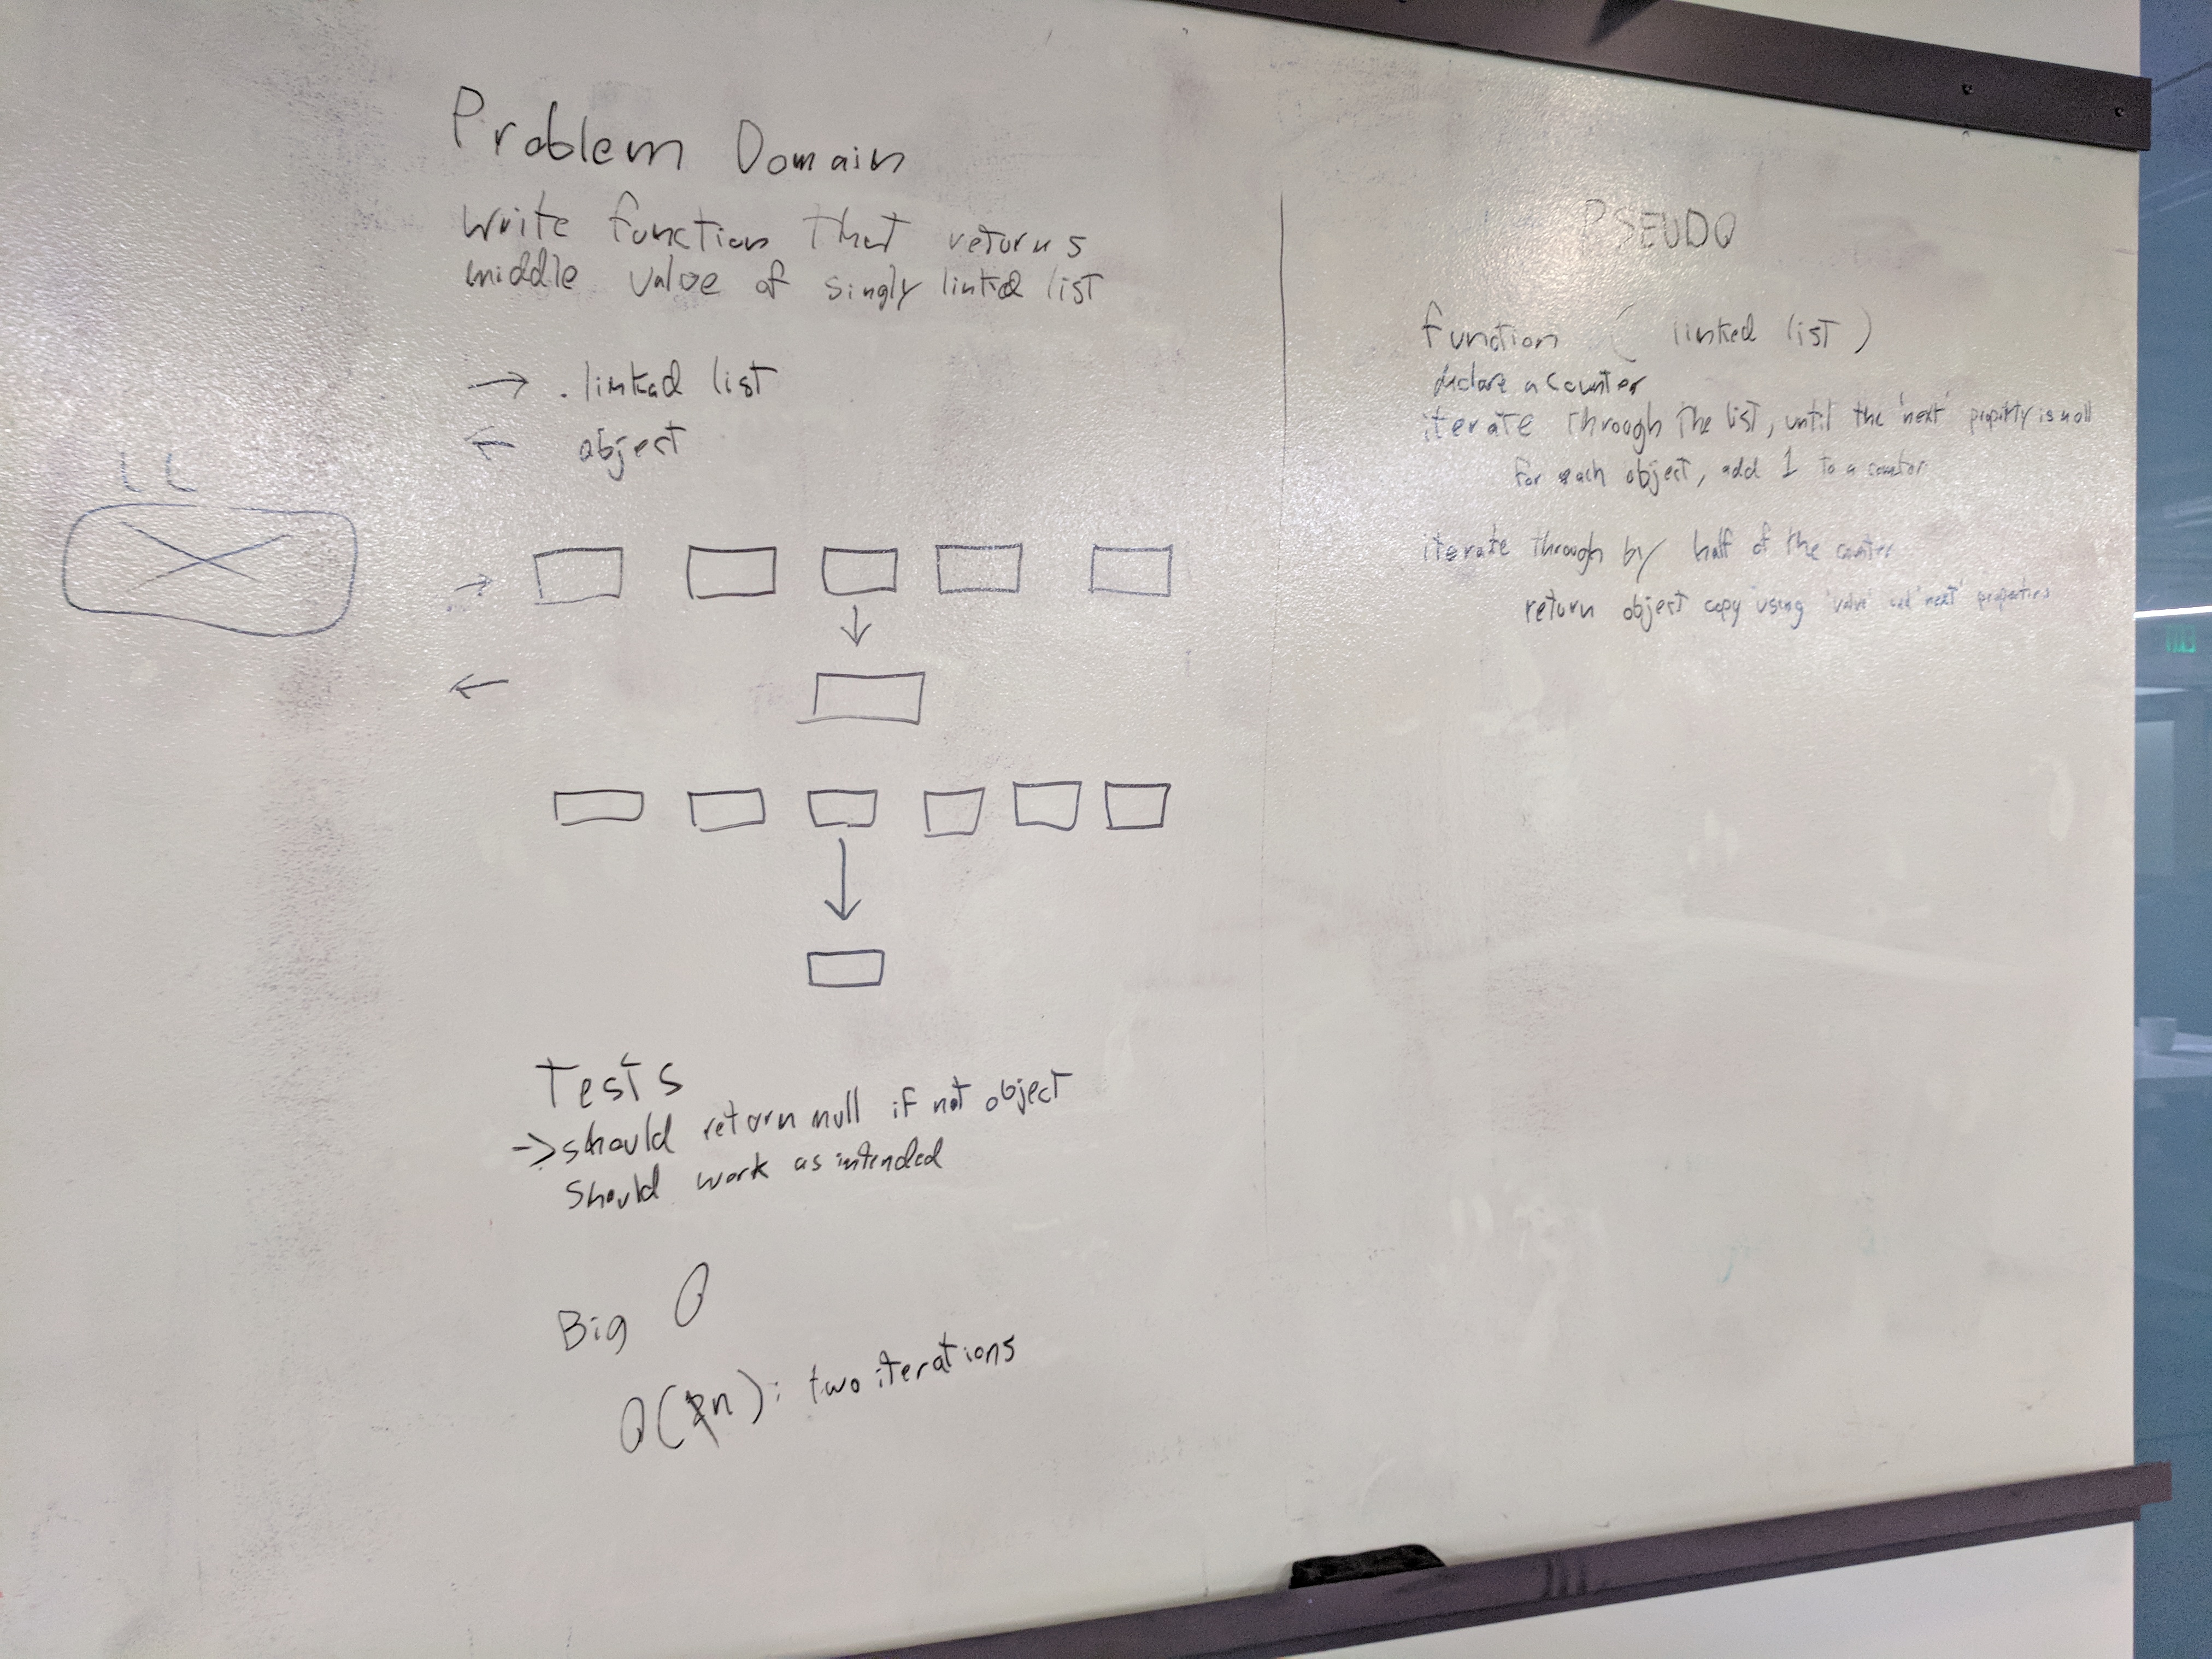 Problem Domain
Write function that returns
middle value of singly linked list
→ . linked list
← object
→
←
Tests
→ should return null if not object
Should work as intended
Big O
O(n): two iterations
PSEUDO
function ( linked list )
declare a counter
iterate through the list, until the 'next' property is null
for each object, add 1 to a counter
iterate through by half of the counter
return object copy using 'value' and 'next' properties